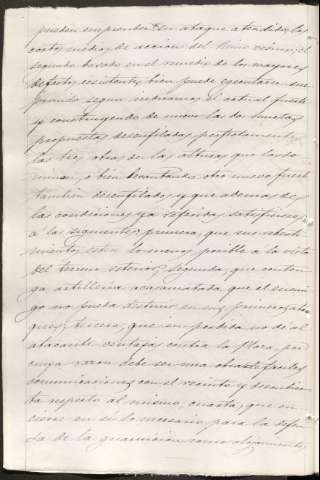 pueden emprender un ataque atendidos los
cortos medios de accion del Reino vecino; el
segundo basado en el remedio de los mayores
defectos existentes, bien puede ejecutarse su-
primido segun indicamos el actual fuerte
y construyendo de nuevo las dos lunetas
propuestas desenfiladas perfectamente
las tres obras de las alturas que las do-
minan, o bien levantando otro nuevo fuerte
tambien desenfilado y que ademas de
las condiciones ya referidas satisfaciese
á las siguientes; primera, que sus revesti-
mientos esten lo menos posible á la vista
del terreno esterior; segunda, que conten-
ga artilleria acasamatada que el enemi-
go no pueda destruir en sus primeros ata-
ques; tercera, que su perdida no dé al
atacante ventajas contra la Plaza, por
cuya razon debe ser una obra de faciles
comunicaciones con el recinto y descubier-
ta respecto al mismo; cuarta, que en-
cierre en sí lo necesario para la defen-
sa de la guarnicion como alojamiento,